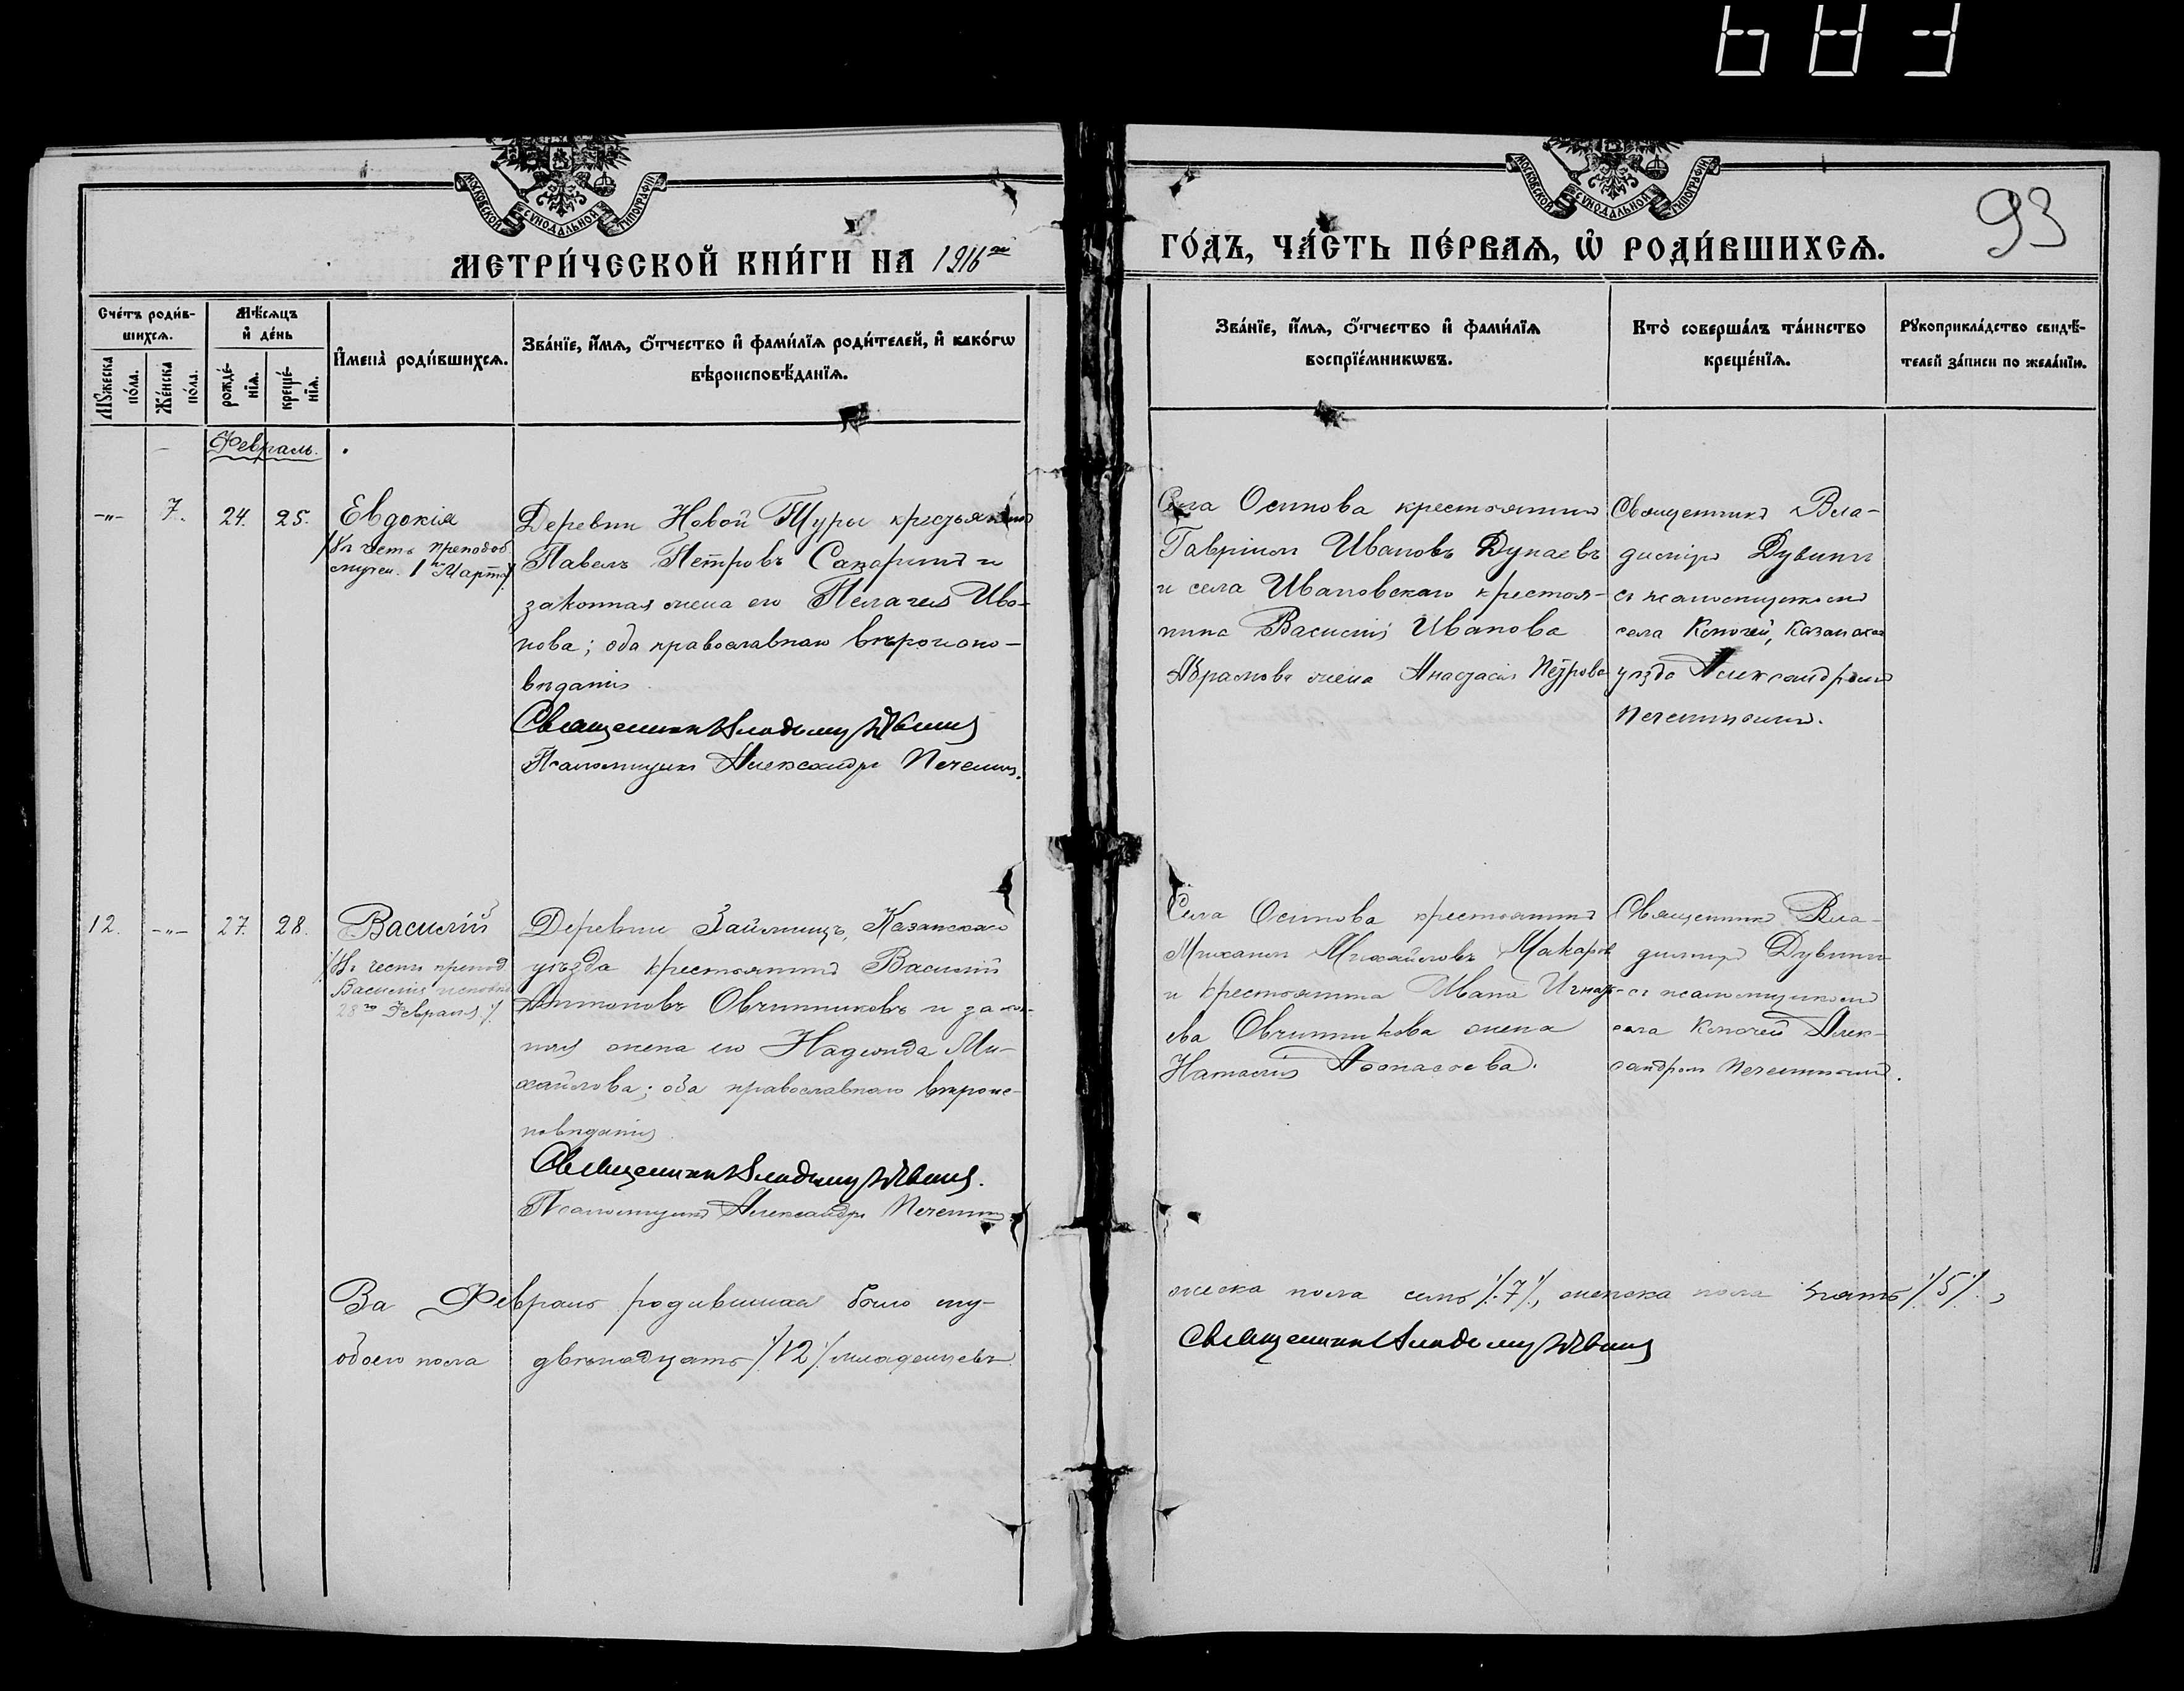 93
МОСКОВСКОЙ СУНОДАЛЬНОЙ ТИПОГРАФІИ
МОСКОВСКОЙ СУНОДАЛЬНОЙ ТИПОГРАФІИ
МЕТРИ́ЧЕСКОЙ КНИ́ГИ НА 1916ый
ГО́ДЪ, ЧА́СТЬ ПЕ́РВАѦ, Ѡ҆ РОДИ́ВШИХСѦ.
Сче́тъ роди́в-
шихсѧ.
Мꙋ́жеска по́ла.
Же́нска по́ла.
Мѣ́сѧцъ
и҆ де́нь
рожде́-
нїѧ.
креще́-
нїѧ.
И҆мена̀ роди́вшихсѧ.
Зва́нїе, и҆́мѧ, ѻ҆́тчество и҆ фами́лїѧ роди́телей, и҆ како́гѡ
вѣроисповѣ́данїѧ.
Зва́нїе, и҆́мѧ, ѻ҆́тчество и҆ фами́лїѧ
воспрїе́мникѡвъ.
Кто̀ соверша́лъ та́инство
креще́нїѧ.
Рꙋкоприкла́дство свидѣ́-
телей за́писи по жела́нїю.
Февраль.
-"- 7. 24. 25.
Евдокія
/Въ честь преподоб.
мучен. 1го Марта/
Деревни Новой Туры крестьянинъ
Павелъ Петровъ Сахаринъ и
законная жена его Пелагея Ива-
нова; оба православнаго вѣроиспо-
вѣданія
Священникъ Владимиръ Дувинъ
Псаломщикъ Александръ Печенинъ.
Села Осинова крестьянинъ
Гавріилъ Ивановъ Дунаевъ
и села Ивановскаго крестья-
нина Василія Иванова
Абрамова жена Анастасія Петрова
Священникъ Вла-
димиръ Дувинъ
съ псаломщикомъ
села Ключей, Казанскаго
уѣзда Александромъ
Печенинымъ.
12. -"- 27. 28.
Василій
/Въ честь препод.
Василія исповѣд.
28го Февраля./
Деревни Займищъ, Казанскаго
уѣзда крестьянинъ Василій
Антоновъ Овчинниковъ и закон-
ная жена его Надежда Ми-
хайлова; оба православнаго вѣроис-
повѣданія
Священникъ Владимиръ Дувинъ.
Псаломщикъ Александръ Печенинъ.
Села Осинова крестьянинъ
Михаилъ Михайловъ Макаровъ
и крестьянина Ивана Игнать-
ева Овчинникова жена
Наталія Аѳанасьева.
Священникъ Вла-
димиръ Дувинъ
съ псаломщикомъ
села Ключей Алек-
сандромъ Печенинымъ.
За Февраль родившихся было му-
жеска пола семь /7/, женска пола пять /5/,
обоего пола двѣнадцать /12/ младенцевъ
Священникъ Владимиръ Дувинъ